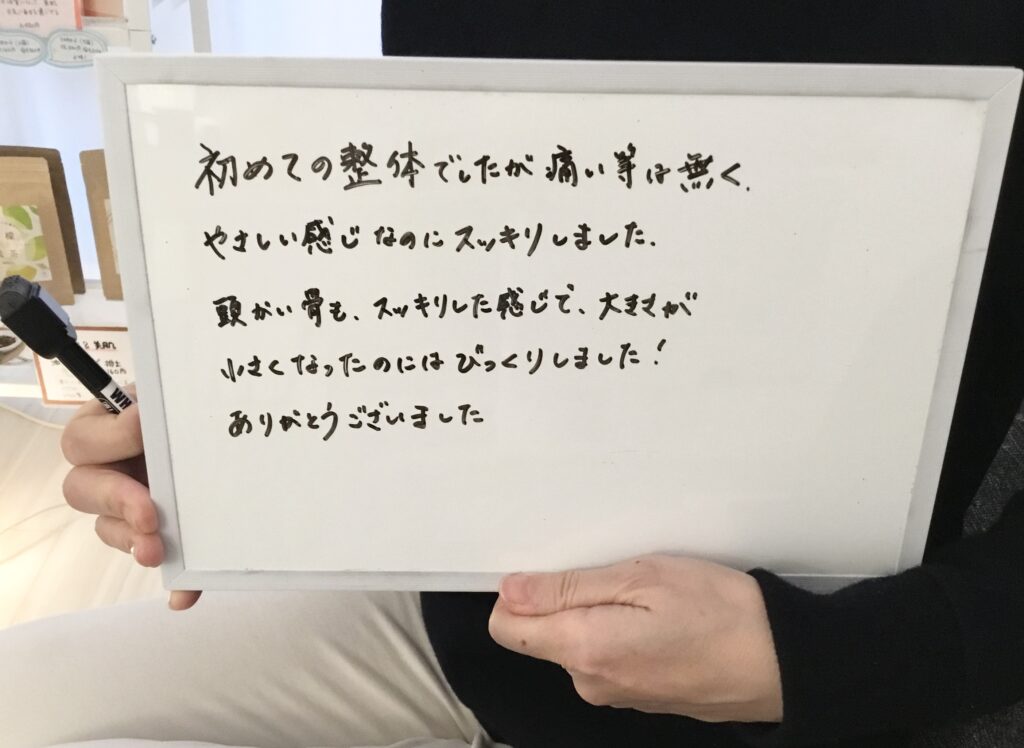 初めての整体でしたが痛い等は無く、
やさしい感じなのにスッキリしました。
頭がい骨も、スッキリした感じで、大きさが
小さくなったのにはびっくりしました！
ありがとうございました
美肌
WH